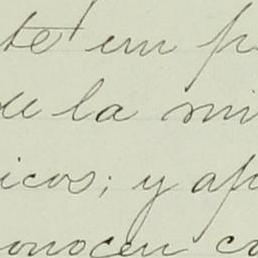 te un p
de la mi
icos; y ap
onocen co